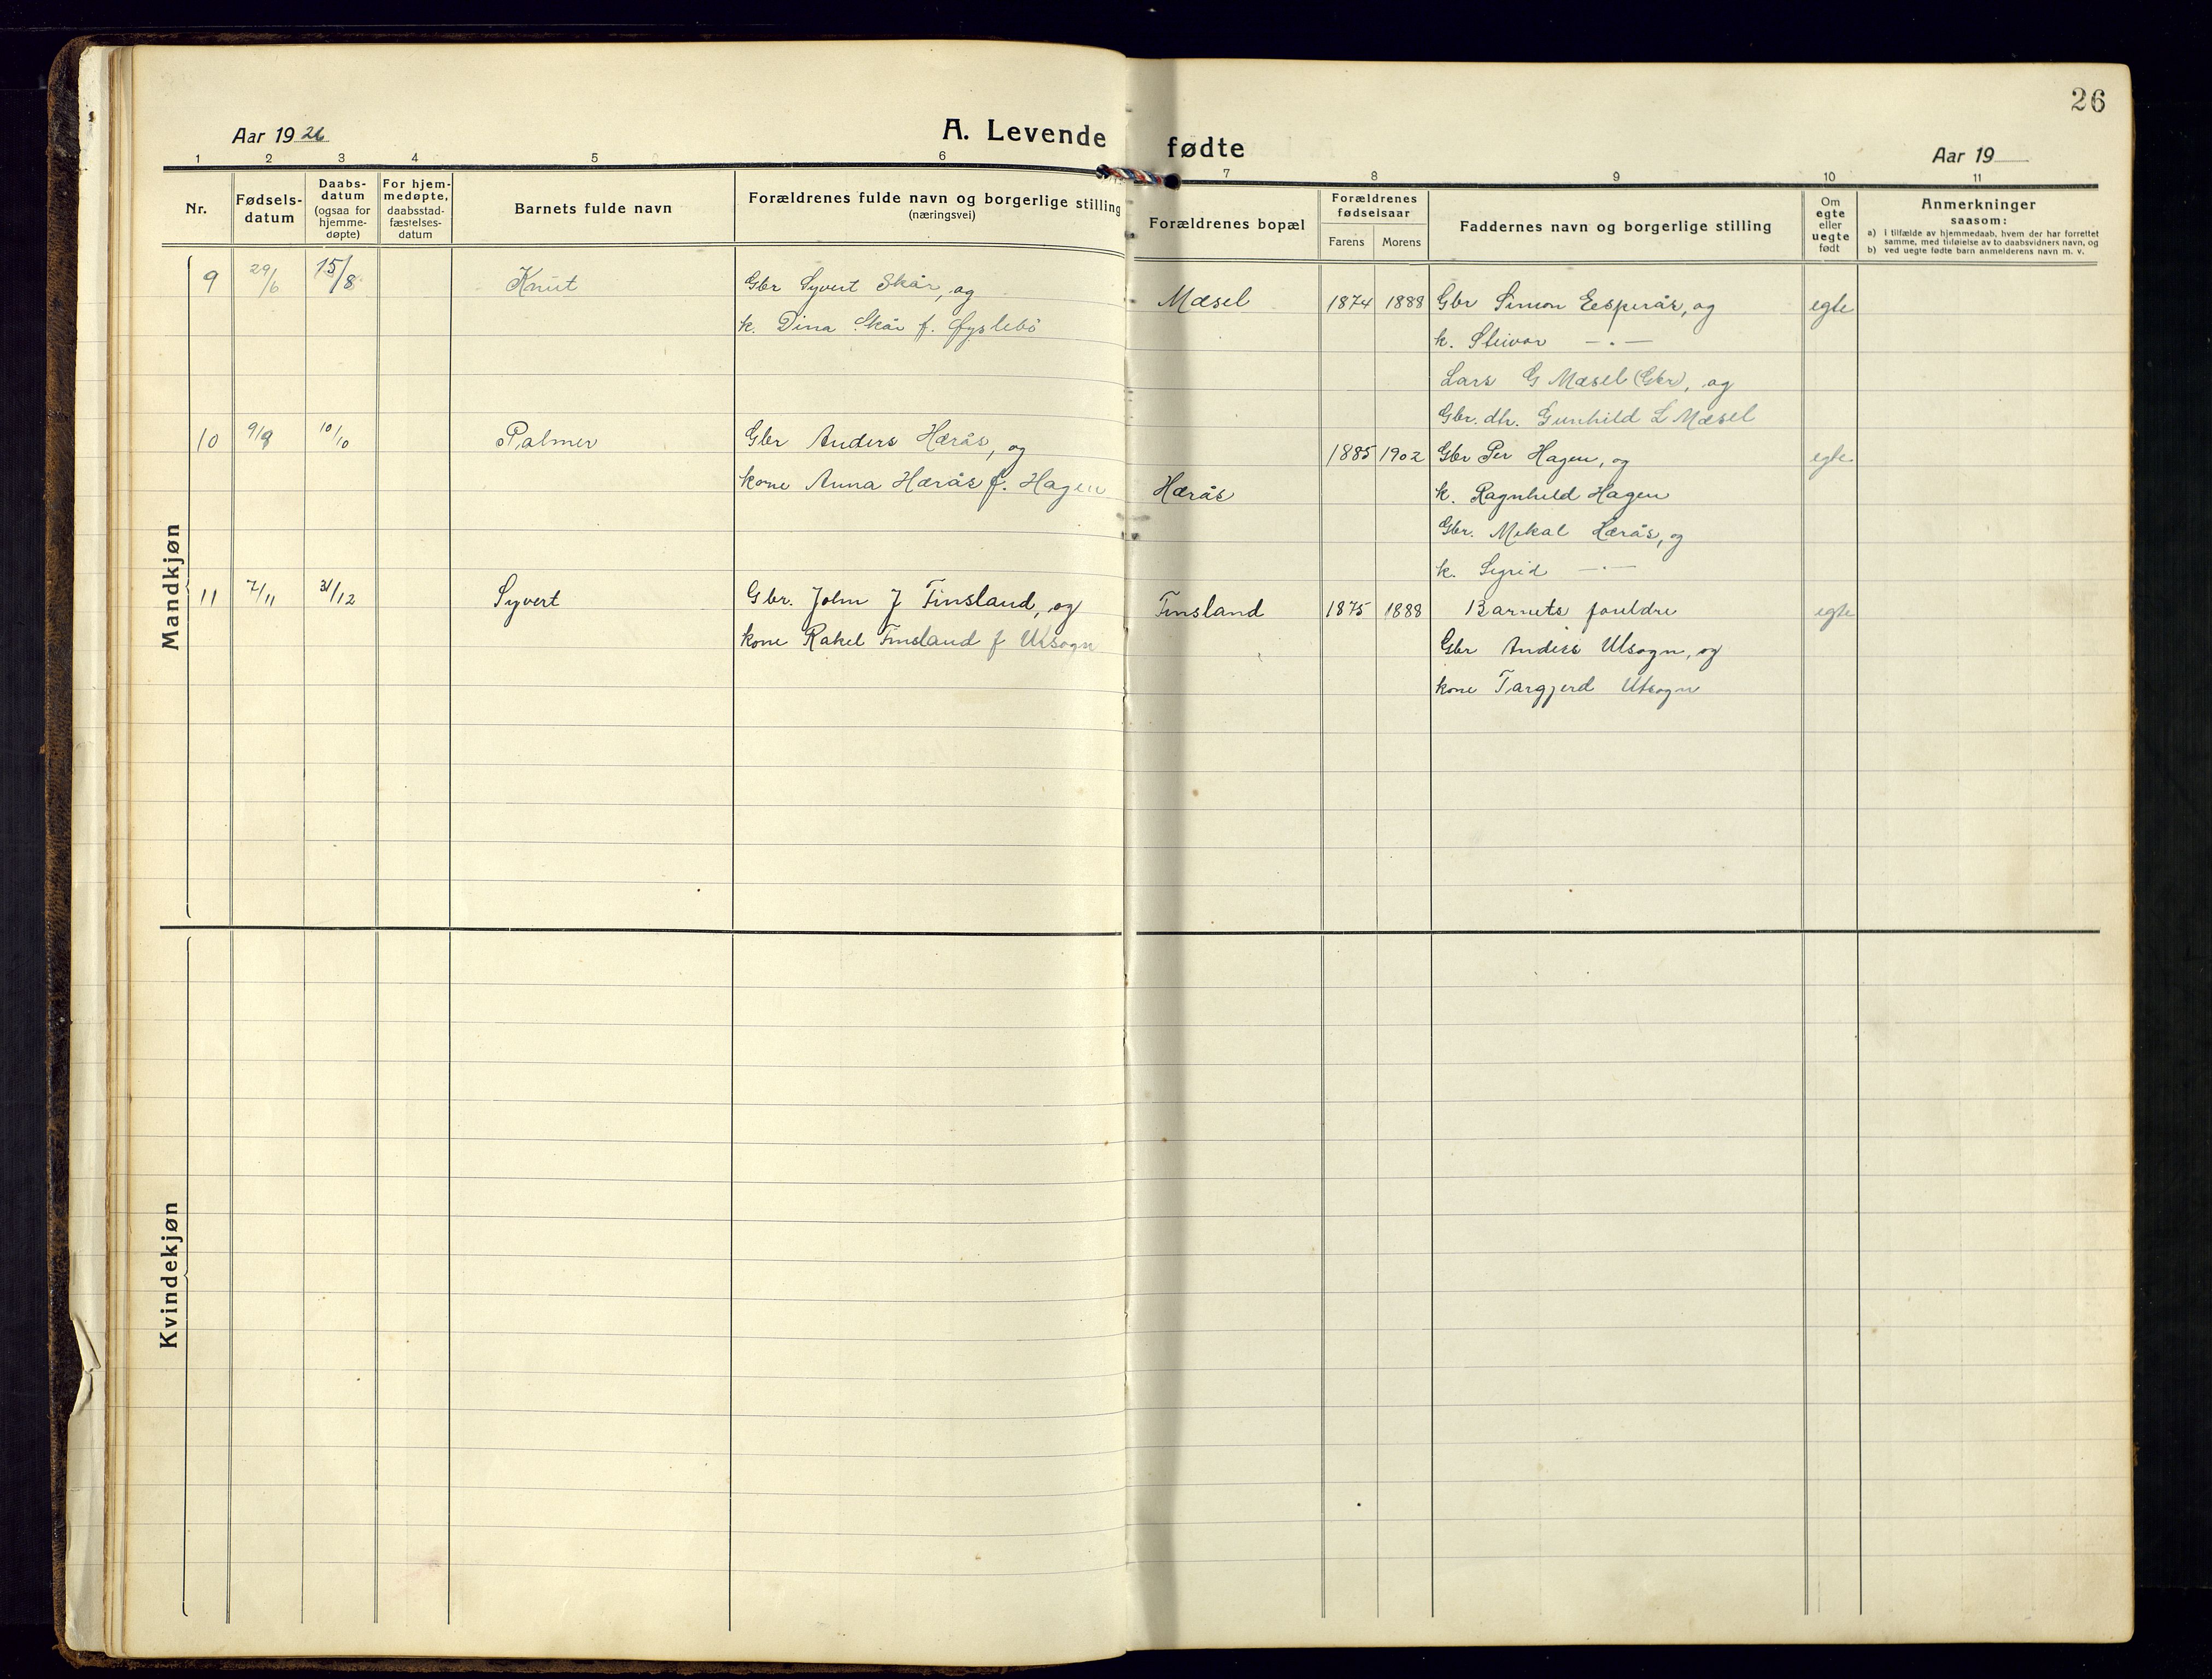 26
Aar 1926
A. Levende fødte
Aar 19
1 2 3 4 5 6 7 8 9 10 11
Nr.
Fødsels-
datum
Daabs-
datum
(ogsaa for
hjemme-
døpte)
For hjem-
medøpte,
daabsstad-
fæstelses-
datum
Barnets fulde navn
Forældrenes fulde navn og borgerlige stilling
(næringsvei)
Forældrenes bopæl
Forældrenes
fødselsaar
Farens Morens
Faddernes navn og borgerlige stilling
Om
egte
eller
uegte
født
Anmerkninger
saasom:
a) i tilfælde av hjemmedaab, hvem der har forrettet
samme, med tilføielse av to daabsvidners navn, og
b) ved uegte fødte barn anmelderens navn m. v.
Mandkjøn
9 29/6 15/8 Knut Gbr Syvert Skår, og Mæsel 1874 1888 Gbr Simon Eesperås, og egte
k. Dina Skår f. Øyslebö k. Steivor —.—
Lars G Mæsel (Gbr), og
Gbr. dh. Gunhild L Mæsel
10 9/9 10/10 Palmer Gbr Anders Hærås, og 1885 1902 Gbr Per Hagen, og egte
kone Anna Hærås f. Hagen Hærås k. Ragnhild Hagen
Gbr. Mikal Hærås, og
k. Sigrid —.—
11 7/11 31/12 Syvert Gbr. John J Finsland, og Finsland 1875 1888 Barnets foreldre egte
kone Rakel Finsland f Utsogn Gbr Anders Utsogn, og
kone Targjerd Utsogn
Kvindekjøn